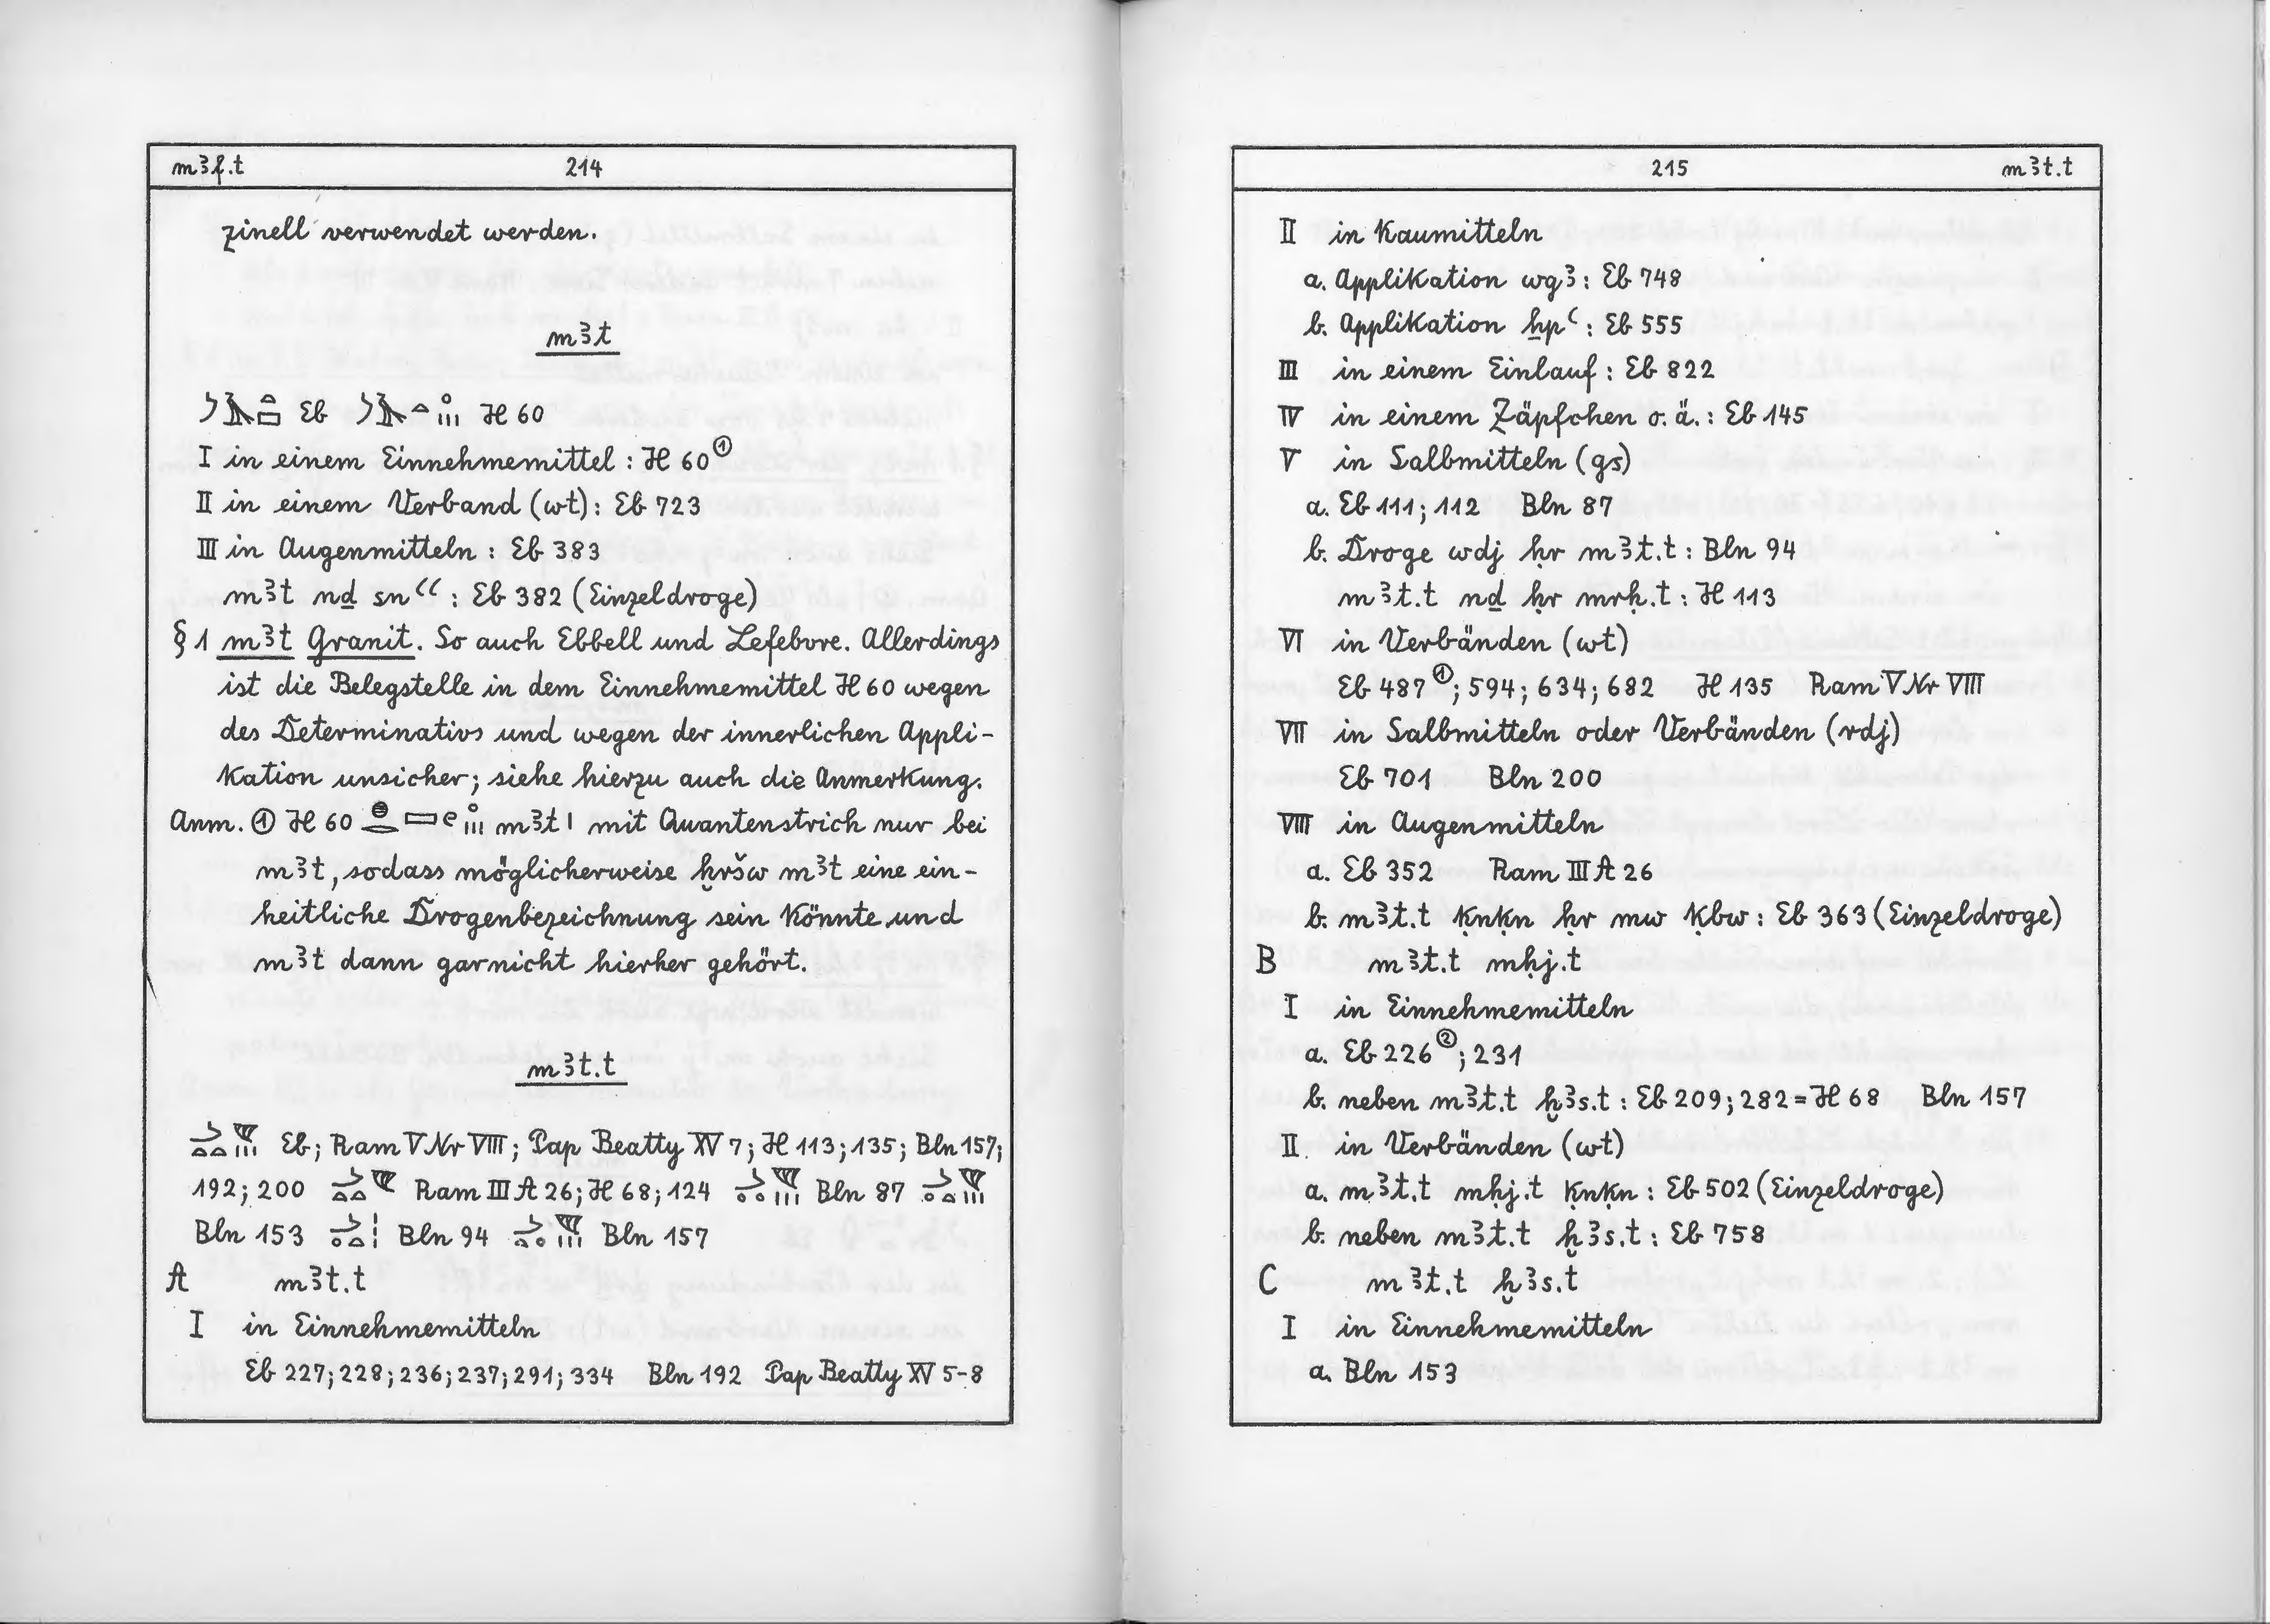 mꜣf.t 214
zinell verwendet werden.
mꜣt
Eb H 60
I in einem Einnehmemittel : H 60①
II in einem Verband (wt) : Eb 723
III in Augenmitteln : Eb 383
mꜣt nḏ snꜥꜥ : Eb 382 (Einzeldroge)
§ 1 mꜣt Granit. So auch Ebbell und Lefebvre. Allerdings
ist die Belegstelle in dem Einnehmemittel H 60 wegen
des Determinativs und wegen der innerlichen Appli-
kation unsicher; siehe hierzu auch die Anmerkung.
Anm. ① H 60 mꜣt I mit Quantenstrich nur bei
mꜣt, sodass möglicherweise ḫršw mꜣt eine ein-
heitliche Drogenbezeichnung sein könnte und
mꜣt dann garnicht hierher gehört.
mꜣt.t
Eb; Ram V Nr VIII; Pap Beatty XV 7; H 113; 135; Bln 157;
192; 200 Ram III A 26; H 68; 124 Bln 87
Bln 153 Bln 94 Bln 157
A mꜣt.t
I in Einnehmemitteln
Eb 227; 228; 236; 237; 291; 334 Bln 192 Pap Beatty XV 5-8
215 mꜣt.t
II in Kaumitteln
a. Applikation wgꜣ : Eb 748
b. Applikation ẖpꜥ : Eb 555
III in einem Einlauf : Eb 822
IV in einem Zäpfchen o. ä. : Eb 145
V in Salbmitteln (gs)
a. Eb 111; 112 Bln 87
b. Droge wdj ḥr mꜣt.t : Bln 94
mꜣt.t nḏ ḥr mrḥ.t : H 113
VI in Verbänden (wt)
Eb 487①; 594; 634; 682 H 135 Ram V Nr VIII
VII in Salbmitteln oder Verbänden (rdj)
Eb 701 Bln 200
VIII in Augenmitteln
a. Eb 352 Ram III A 26
b. mꜣt.t ḳnḳn ḥr mw ḳbw : Eb 363 (Einzeldroge)
B mꜣt.t mḥj.t
I in Einnehmemitteln
a. Eb 226②; 231
b. neben mꜣt.t ḫꜣs.t : Eb 209; 282 = H 68 Bln 157
II. in Verbänden (wt)
a. mꜣt.t mḥj.t ḳnḳn : Eb 502 (Einzeldroge)
b. neben mꜣt.t ḫꜣs.t : Eb 758
C mꜣt.t ḫꜣs.t
I in Einnehmemitteln
a. Bln 153